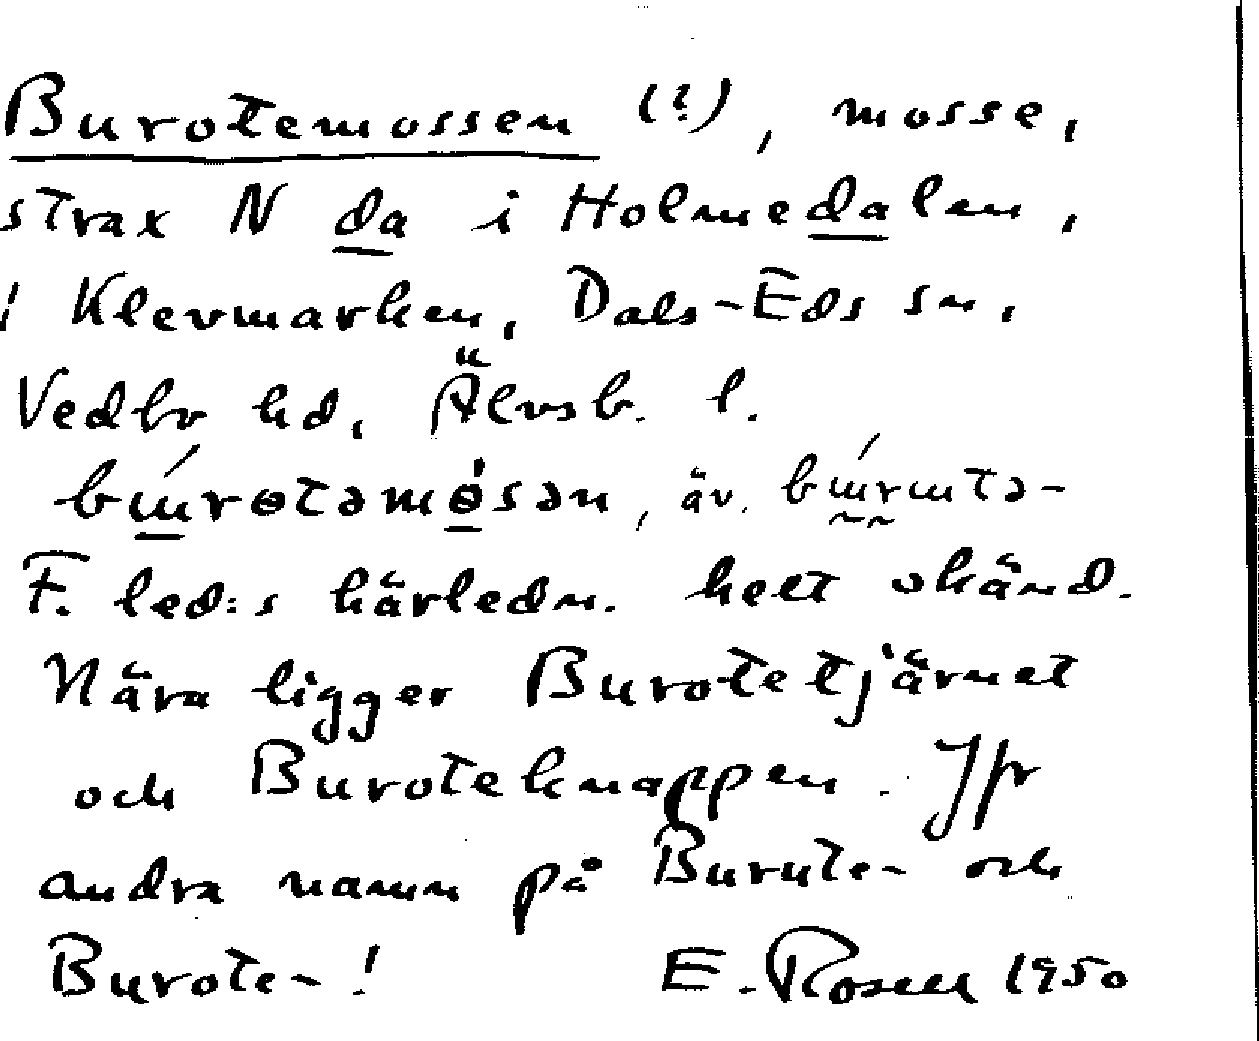 Burotemossen (?), mosse,
strax N da i Holmedalen,
i Klevmarken, Dals-Eds sn,
Vedbo hd, Älvsb. l.
bɯ́rɵtəmɵ̀sən, äv. bɯ́rɯtə-
F. led:s härledn. helt okänd.
Nära ligger Burotetjärnet
och Buroteknappen. Jfr
andra namn på Burute- och
Burote-! E. Rosell 1950